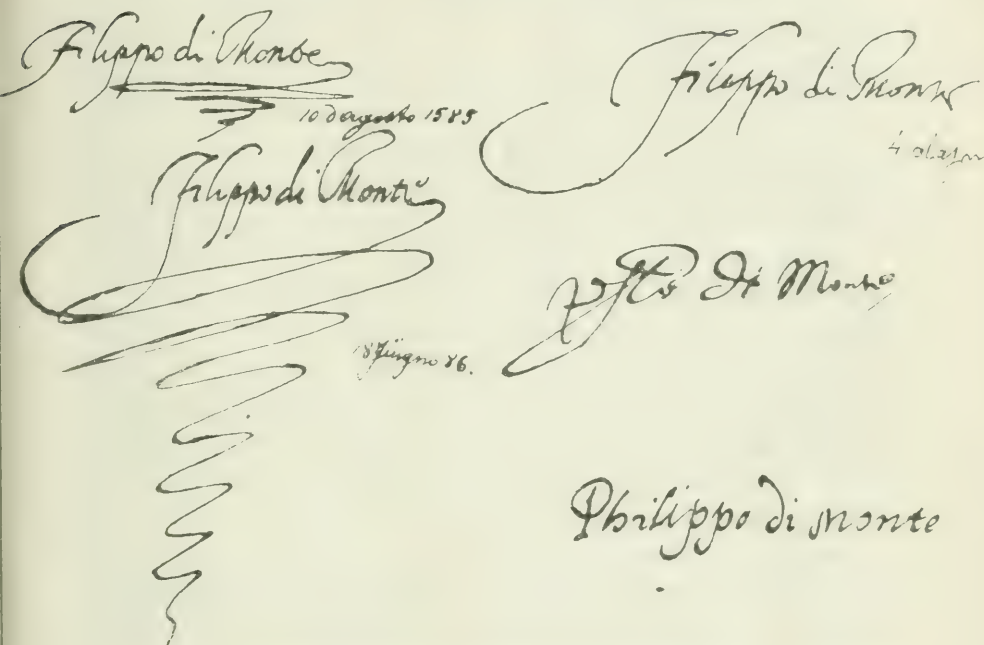 Filippo di Monte
10 d'agosto 1585
Filippo di Monte
18 Giugno 86.
Filippo di Monte
4
di Monte
Philippo di monte